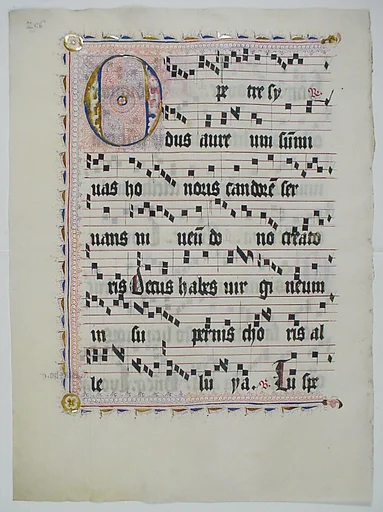 O pe tre sy
dus aure um sūmi
nas ho noris candorē ser
uans in uenū do no creato
ris Decus habes uir gi neum
in su pernis cho ris al
le lu ya. V. Tu spe